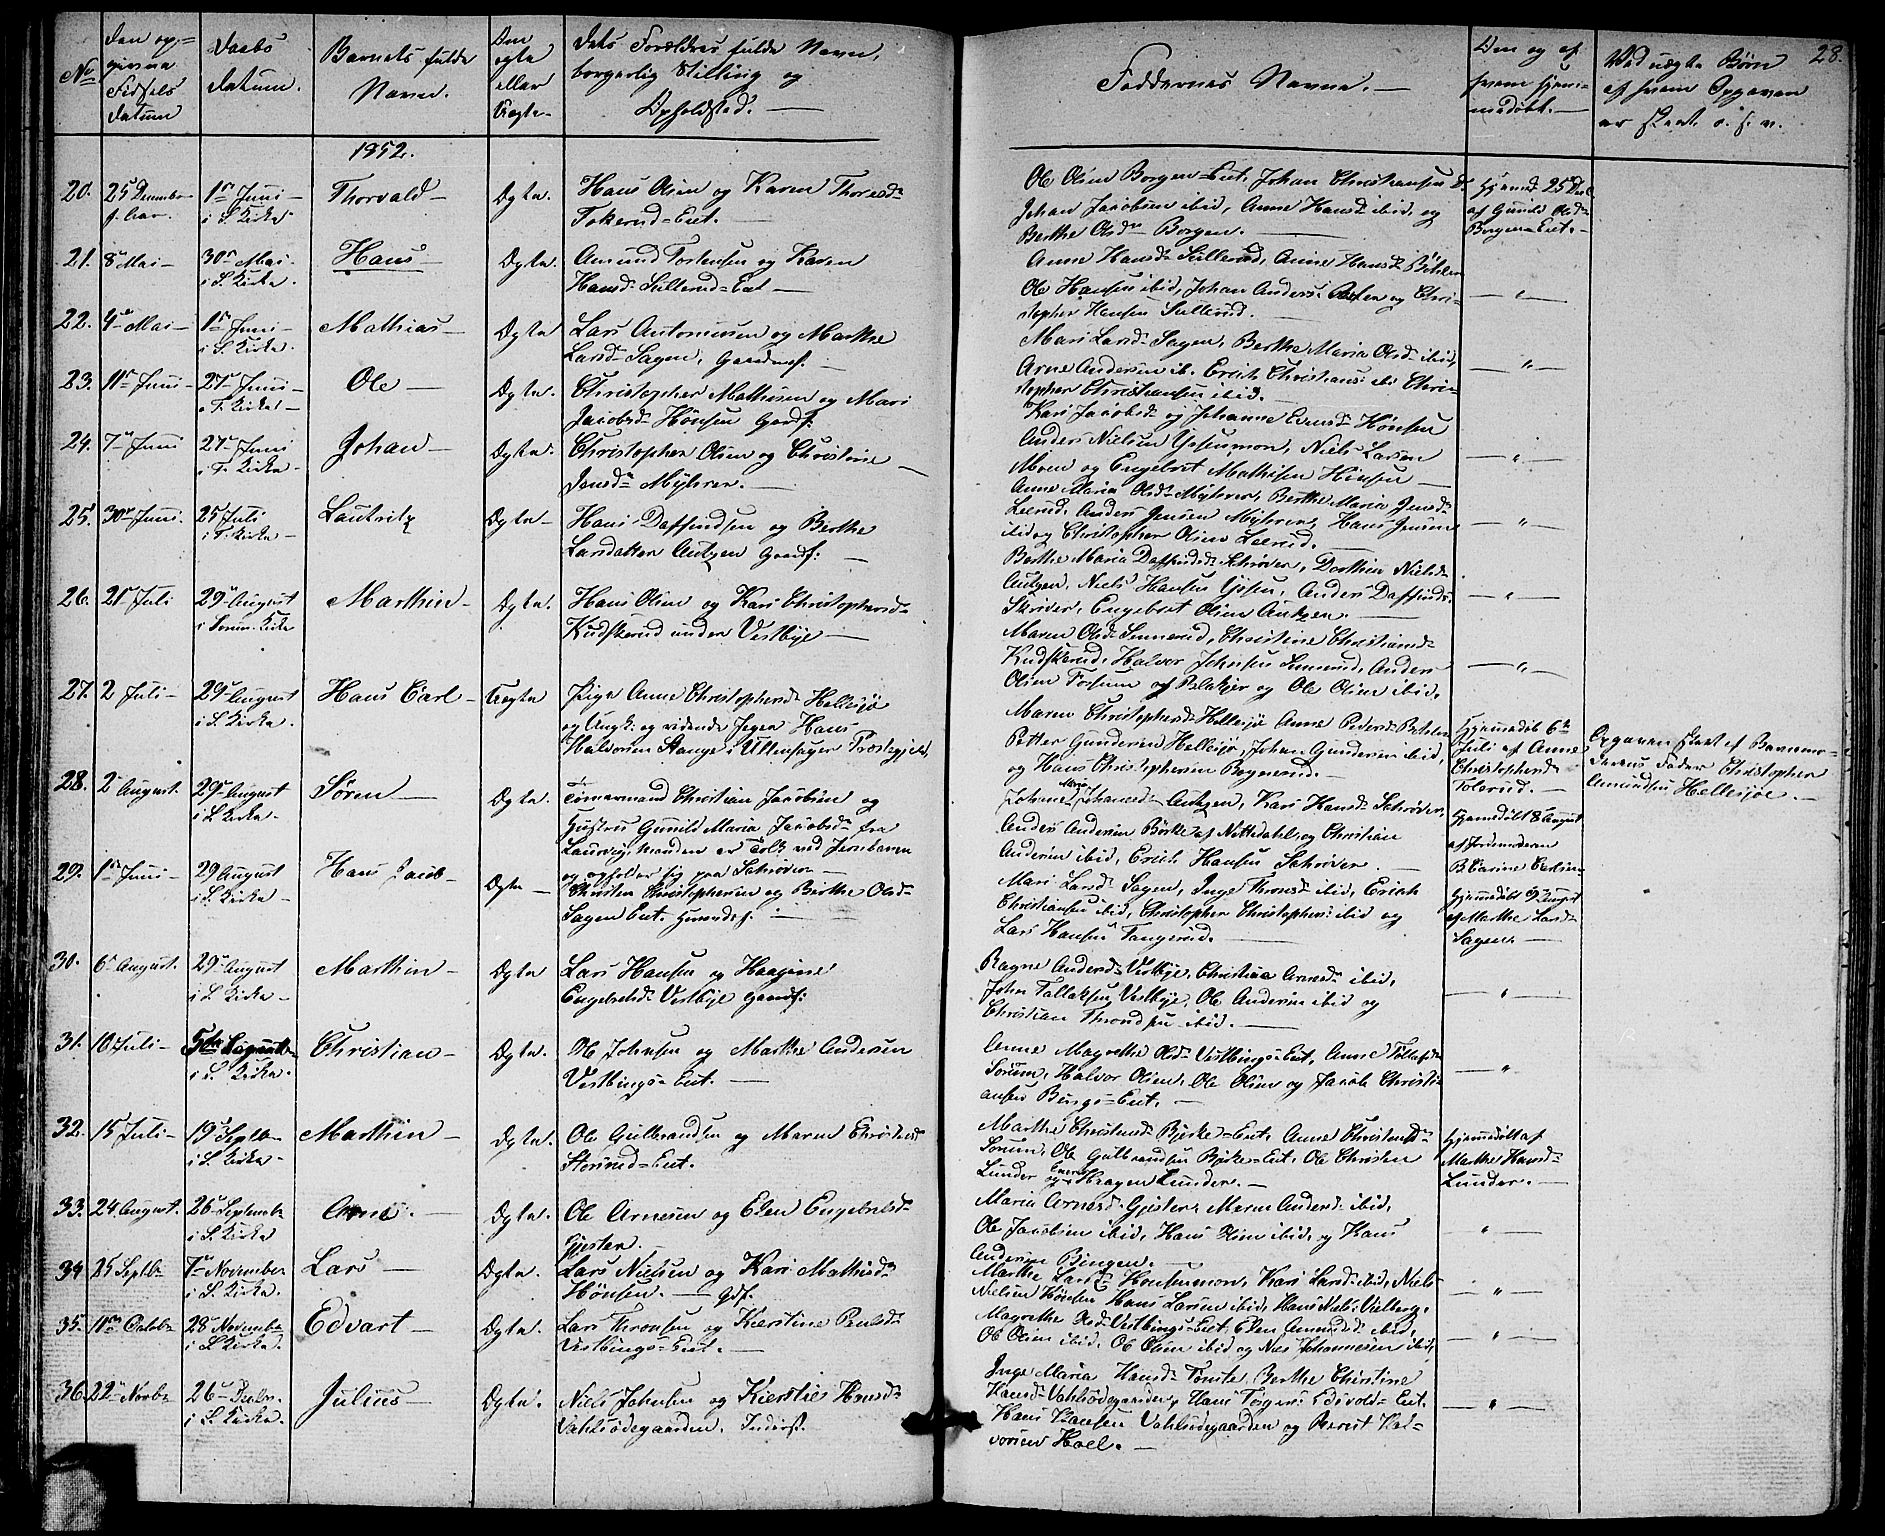 28.
No
Den op-
givne
Fødsels
datum
Daabs
datum.
Barnets fulde
Navn.
Om
egte
eller
Uegte
Dets Forældres fulde Navn,
borgerlig Stilling og
Opholdsted.
Faddernes Navne.
Om og af
hvem hjem-
medøbt.
Ved uægte Børn
af hvem Opgaven
er skeet o. s. v.
1852.
20.
25 December
f. Aar.
1n Juni
i S. Kirke
Thorvald
Ægte.
Hans Olsen og Karen Thoresdr
Tokerud-Eiet.
Ole Olsen Borgen-Eiet, Johan Christiansen
Johan Jacobsen ibid, Anne Hansdr ibid, og
Berthe Olsdr Borgen.
hjemmed. 25 Dec
af Gunild Olsdr
Borgen-Eiet.
21.
8 Mai
30n Mai
i S. Kirke.
Hans
Ægte
Amund Torstensen og Karen
Hansdr Sullerud-Eiet
Anne Hansdr Sullerud, Anne Hansdr
Ole Hansen ibid, Johan Anders. og Chri-
stopher Hansen Sullerud.
22.
4de Mai
1n Juni
i S. Kirke.
Mathias
Ægte
Lars Antonisen og Marthe
Larsdr Sagen, Gaardmf.
Mari Larsdr Sagen, Berthe Maria Olsdr ibid,
Arne Andersen ib. Erich Christians: ibi Chri-
stopher Christiansen ibid.
23.
11n Juni
27n Juni
i T. Kirke
Ole
Ægte.
Christopher Mathisen og Mari
Jacobsdr Hønsen Gaardf.
Kari Jacobsdr og Johanne Evensdr Hønsen
Anders Nielsen Ihsenmon, Niels Larsen
Moen og Engebret Mathisen Hønsen
24.
7n Juni
27n Juni
i T. Kirke
Johan
Ægte.
Christopher Olsen og Christine
Jensdr Myhrer.
Anne Maria Olsdr Myhrer, Berthe Maria Jensdr
Leerud, Anders Jensen Myhrer, Hans Jensen
ibid og Christopher Olsen Leerud.
25.
30n Juni.
25 Juli
i T. Kirke
Lautritz
Ægte
Hans Daffindsen og Berthe
Larsdatter Autzen Gaardf:
Berthe Maria Daffindsdr Schrøver, Dorthea Nielsdr
Autzen, Niels Hansen Ihsen, Anders Daffinds.
Skrøver, Engebret Olsen Autzen.
26.
21n Juli
29n August
i Sørum Kirke
Marthin
Ægte.
Hans Olsen og Kari Christophersdr
Kudskerud under Vestbye
Maren Olsdr Sennerud, Christine Christiansdr
Kudskerud, Halvor Johnsen Sennerud, Anders
Olsen Fossum af Blakjer og Ole Olsen ibid.
27.
2 Juli
29n August
i S. Kirke.
Hans Carl
Uegte
Pige Anne Christophersdr Hellesjø
og Ungk. og ridende Jeger Hans
Halvorsen Hauge i Ullensager Præstegjeld.
Maren Christophersdr Hellesjø Anne Pedersdr
Petter Gundersen Hellesjø, Johan Gundersen ibid,
og Hans Christophersen Bognerud.
Hjemmedøb 6te
Juli af Anne
Christophersdr
Tolerud.
Opgaven skeet af Barnemo-
derens Fader Christopher
Amundsen Hellesjøe.
28.
2n August.
29n August
i S. Kirke.
Søren
Ægte.
Timmermand Christian Jacobsen og
Hustru Gunild Maria Jacobsdr fra
Laurvig, Manden er Tolk ved Jernbanen
og opholder sig paa Schrøver
Johanne Marie Johansdr Autzen, Kari Hansdr Schrøver,
Anders Andersen Børke af Nittedahl, og Christian
Andersen ibid, Erich Hansen Schrøver
Hjemmedøbt 8 August
af Jordemoderen
B Carine Carlsen
29.
1n Juni
29 August
i S. Kirke
Hans Jacob
Ægte
Christen Christophersen og Berthe Olsdr
Sagen Eiet. Huusmdf.
Mari Larsdr Sagen, Inge Thronsdr ibid, Erich
Christiansen ibid, Christopher Christophers: ibid og
Lars Hansen Tangerud.
Hjemmedøbt 9 August
af Marthe Larsdr
Sagen.
30.
6n August.
29n August
i S. Kirke
Marthin
Ægte
Lars Hansen og Haagine
Engebretsdr Vestbye Gaardf:
Ragne Andersdr Vestbye, Christine Arnesdr ibid,
John Tollaksen Vestbye, Ole Andersen ibid og
Christian Throndsen ibid.
31.
10 Juli
5te Septemb.
i S. Kirke.
Christian
Ægte.
Ole Johnsen og Marthe Andersen
Vestbings-Eiet.
Anne Magrethe Olsdr Vestbings-Eiet, Anne Tollefsdr
Sørum, Halvor Olsen, Ole Olsen og Jacob Christi-
ansen Bings-Eiet.
32.
15 Juli
19n Septb
i S. Kirke
Marthin
Ægte.
Ole Gulbrandsen og Maren Christensdr
Stensrud-Eiet.
Marthe Christensdr Bjerke-Eiet, Anne Christensdr
Sørum, Ole Gulbrandsen Bjerke-Eiet, Ole Christen
Lunder og Haagen Lunder.
Hjemmedøbt af
Marthe Hansdr
Lunder.
33.
24. August.
26n Septembr
i S. Kirke
Arne.
Ægte.
Ole Arnesen og Elen Engebretsdr
Gjester.
Maria Arnesdr Gjester, Maren Andersdr ibid,
Ole Jacobsen ibid, Hans Olsen ibid, og Hans
Andersen Bingen.
34
25 Septbr
7n November
i S. Kirke.
Lars
Ægte.
Lars Nielsen og Kari Mathisdr
Hønsen. Gdf.
Marthe Larsdr Hønsenmon, Kari Larsdr ibid, Niels
Nielsen Hønsen Hans Larsen ibid, Hans Niels: Vilberg.
35.
11n Octobr
28 Novembr
i S. Kirke.
Edvart
Ægte.
Lars Thronsen og Kierstine Paulsdr
Vestbings-Eiet.
Magrethe Olsdr Vestbings-Eiet, Elen Amundsdr ibid,
Ole Olsen ibid, Ole Olsen ibid og Niels Johannesen ibid,
36.
22n Novbr
26n Decbr.
i S. Kirke.
Julius
Ægte.
Niels Johnsen og Kierstie Hansdr
Vahlsødegaarden. Inderst.
Inge Maria Hansdr Tønte, Berthe Christine
Hansdr Vahlsødegaarden, Hans Torgers: Edsvold-Eiet.
Hans Hansen Vahlsødegaarden og Berent Hal-
vorsen Hoel.